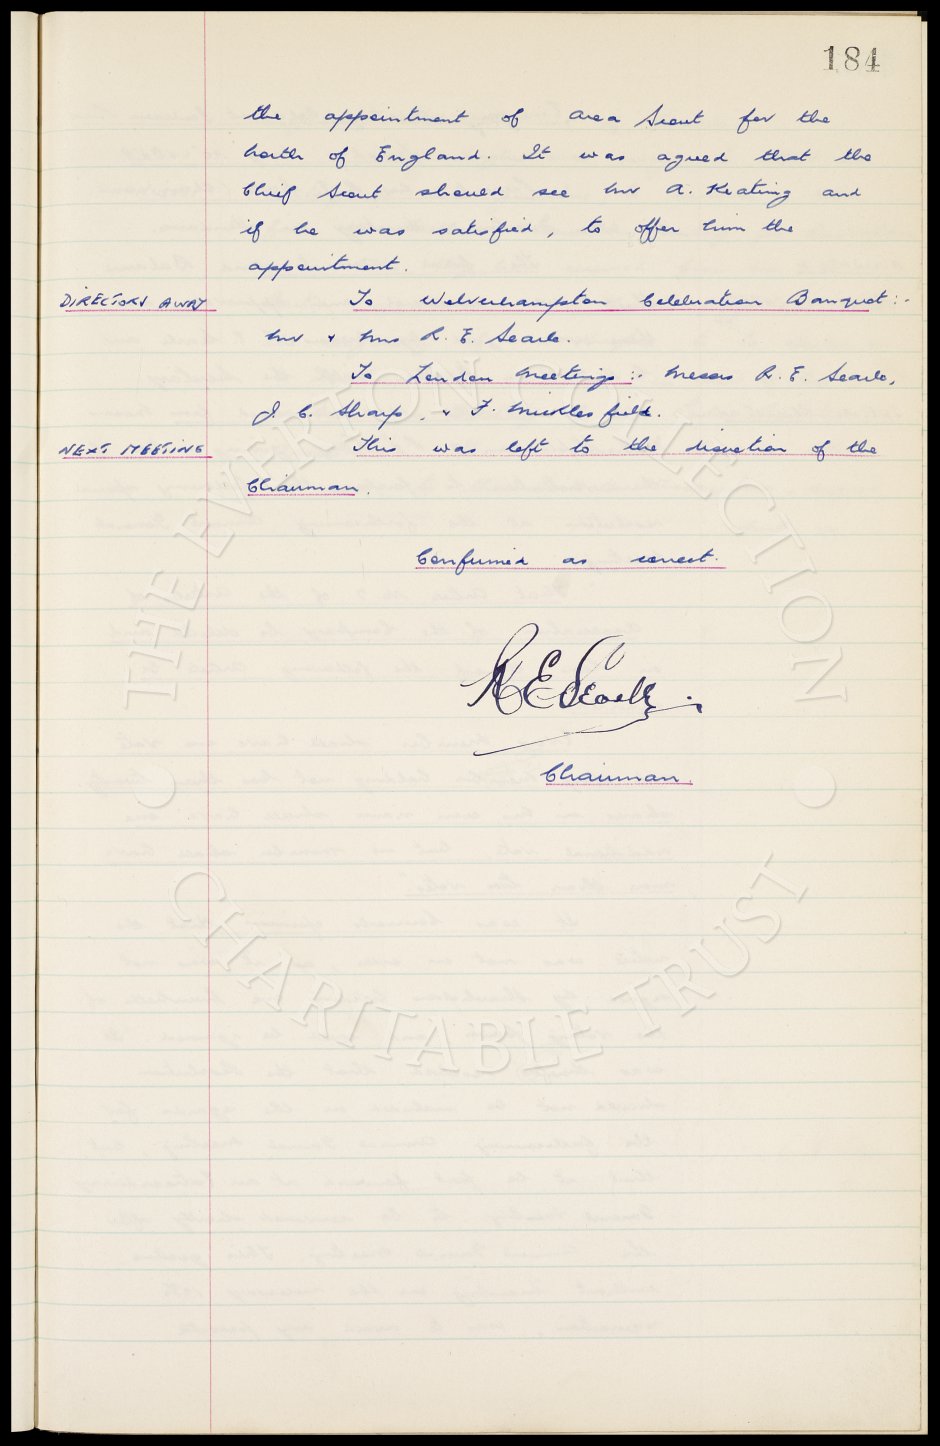 184
the appointment of area Scout for the
North of England. It was agreed that the
Chief Scout should see Mr A. Keating and
if he was satisfied, to offer him the
appointment.
DIRECTORS AWAY To Wolverhampton Celebration Banquet :-
Mr & Mrs R. E. Searle.
To London Meetings :- Messrs R. E. Searle,
J. C. Sharp, & F. Micklesfield.
NEXT MEETING This was left to the discretion of the
Chairman.
Confirmed as correct.
R E Searle
Chairman.
THE EVERTON COLLECTION
CHARITABLE TRUST